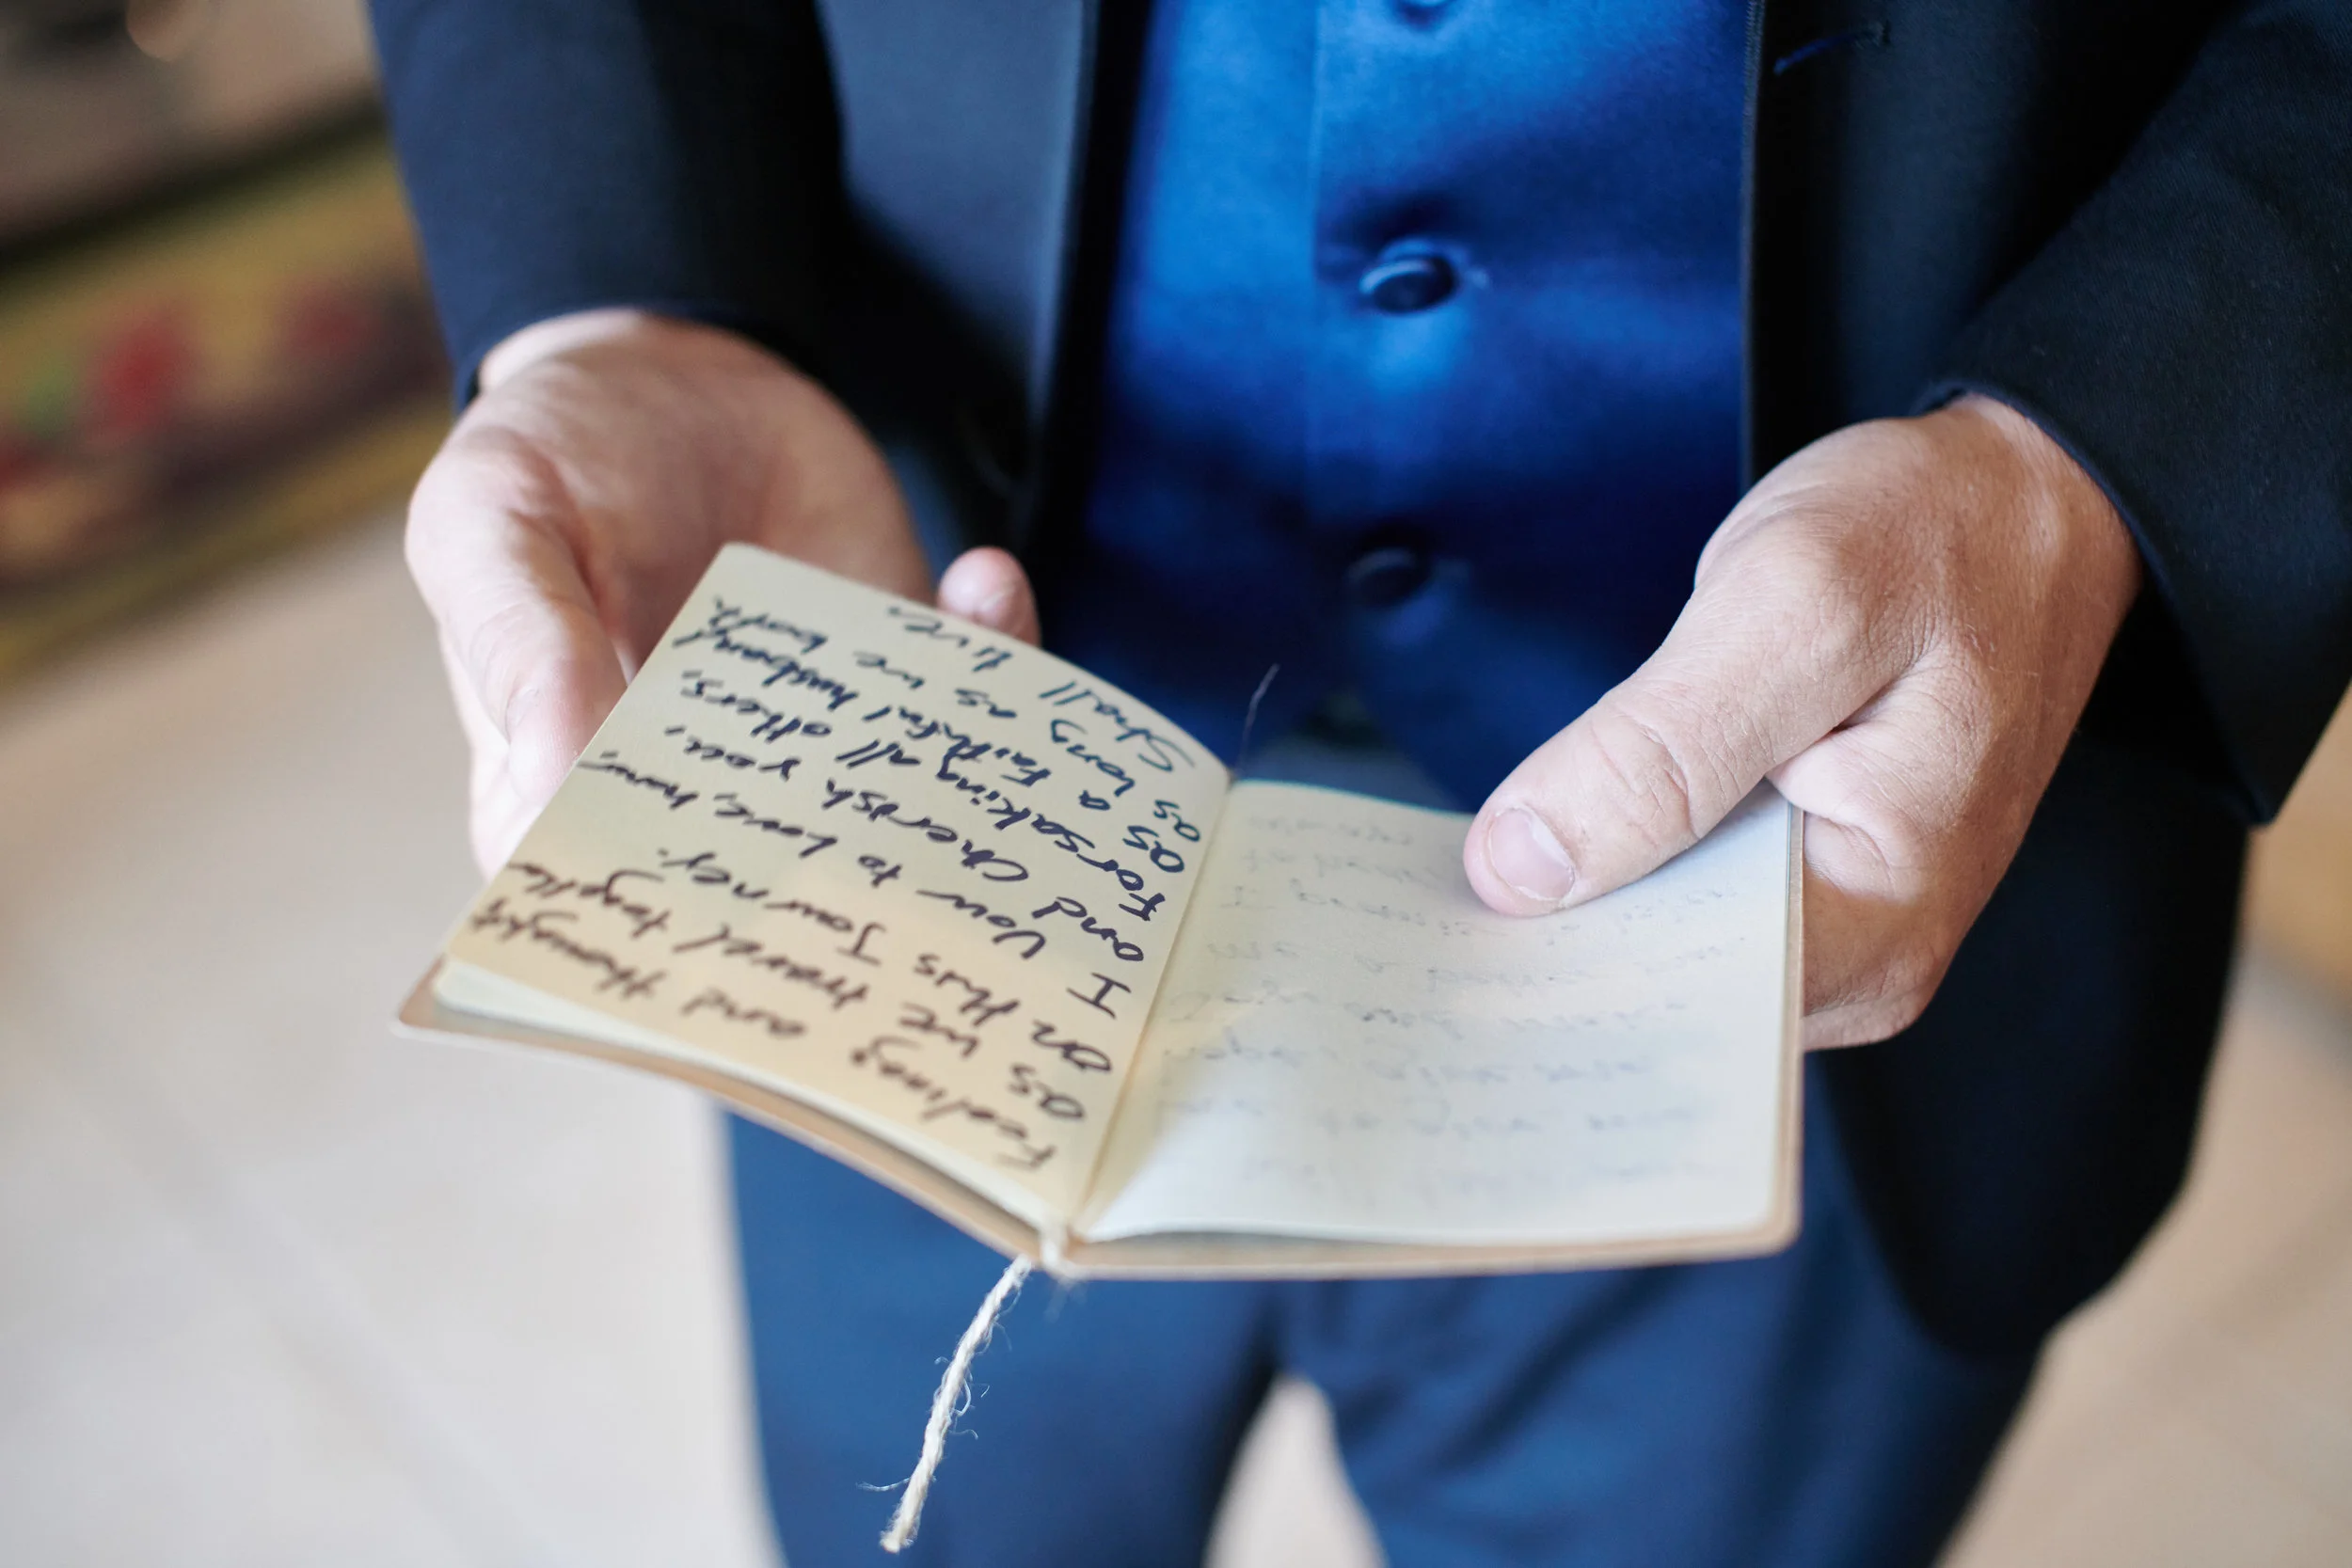 Feelings and thought
as we travel together
on this Journey.
I Vow to love, honor,
and Cherish you,
Forsaking all others,
as a faithful husband
as long as we both
Shall live